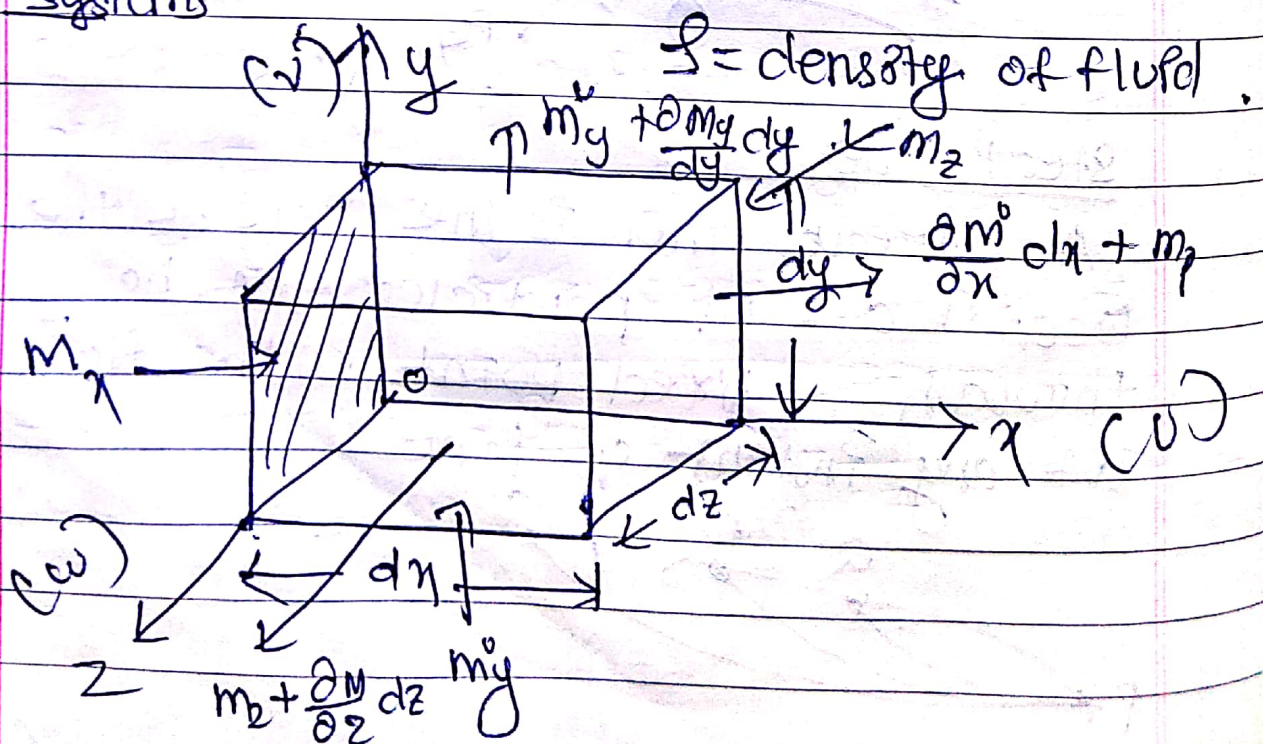 systems
(v) y
ρ = density of fluid.
ṁy + ∂My/dy dy
mz
dy
∂ṁ/∂x dx + m
ṁx
o
x (u)
dz
(w)
dx
z
mz + ∂M/∂z dz
ṁy